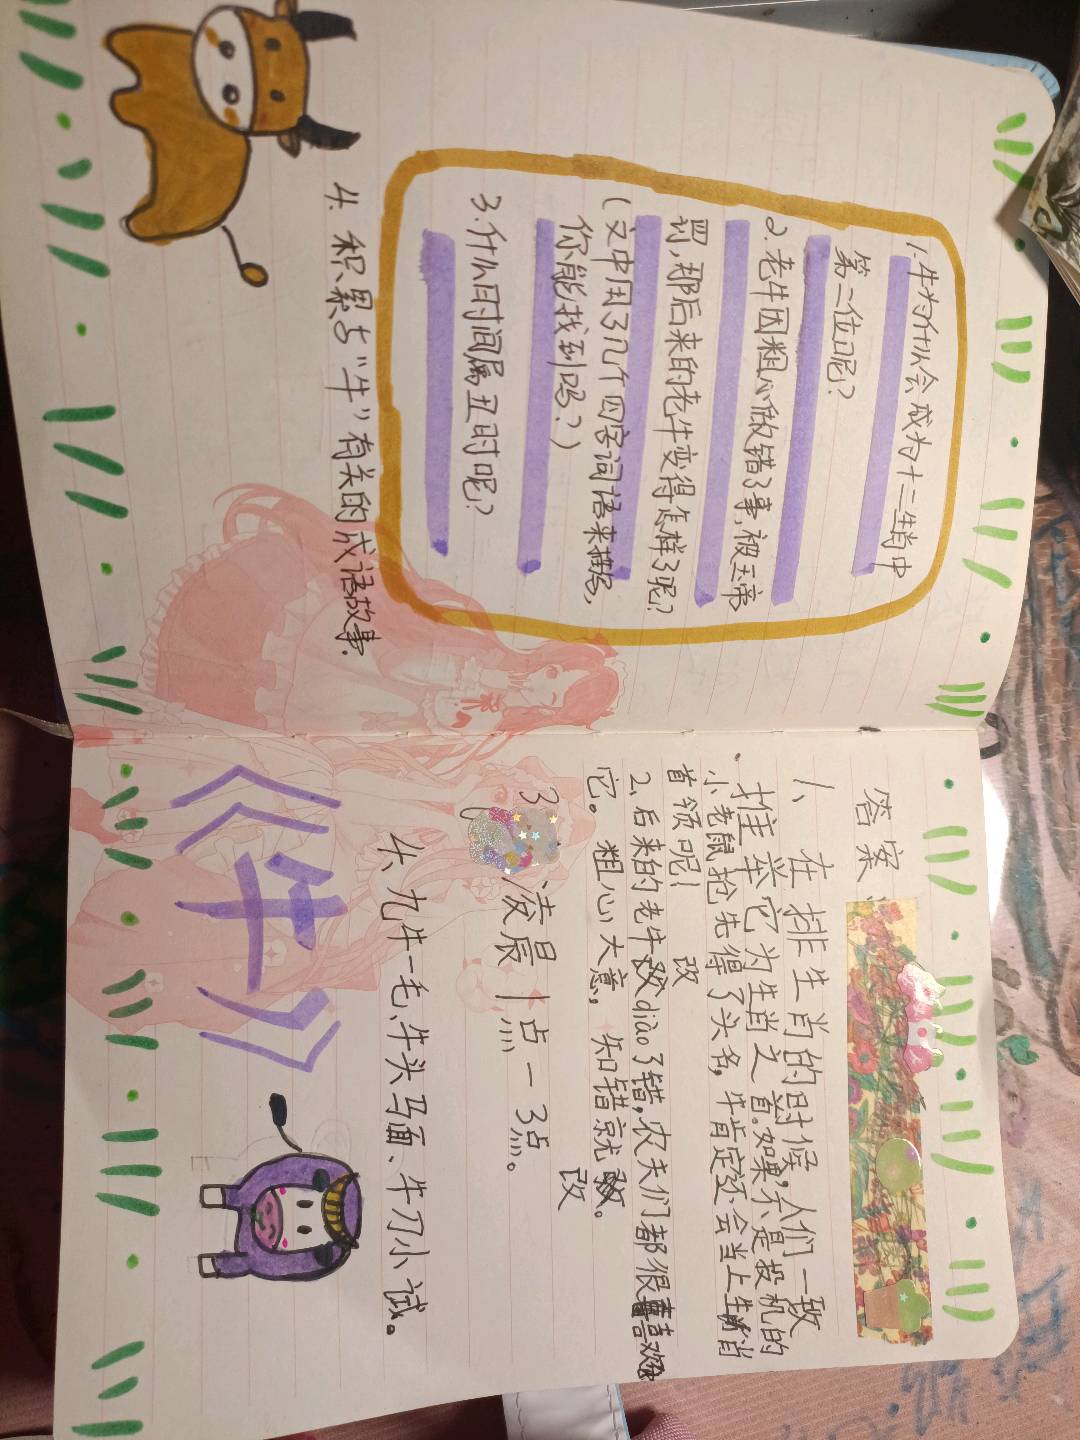 1.牛为什么会成为十二生肖中
第二位呢?
2.老牛因粗心做错了事,被玉帝
罚,那后来的老牛变得怎样了呢?
(文中用了几个四字词语来描写,
你能找到吗?)
3.什么时间属丑时呢?
4.积累与“牛”有关的成语故事.
答案:
1、在排生肖的时候,人们一致
推举它为生肖之首。如果不是投机的
小老鼠抢先得了头名,牛肯定还会当上生肖
首领呢!
改
2、后来的老牛改diào了错,农夫们都很喜欢
它。粗心大意,知错就改。
改
3、凌晨1点一3点。
4、九牛一毛、牛头马面、牛刀小试。
《牛》